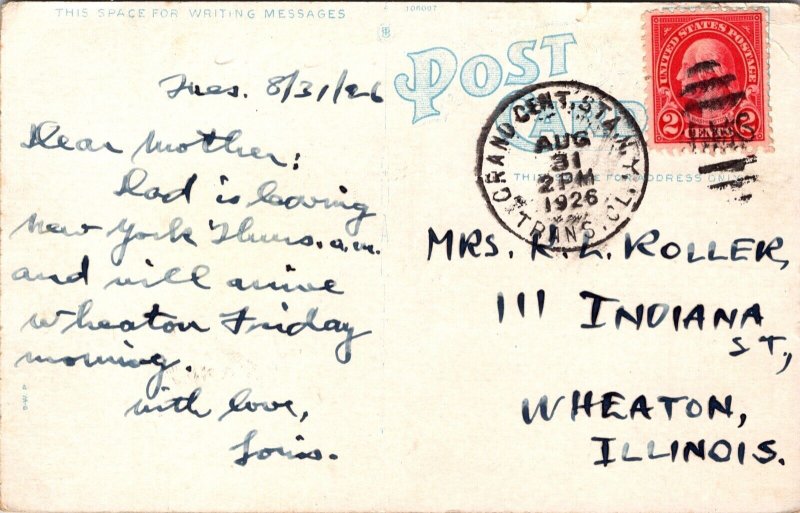 THIS SPACE FOR WRITING MESSAGES
Tues. 8/31/26
Dear Mother:
Dad is leaving
New York Thurs. a.m.
and will arrive
Wheaton Friday
morning.
With love,
Louis.
POST CARD
THIS SPACE FOR ADDRESS ONLY
GRAND CENT. STA. N.Y.
AUG
31
2 PM
1926
TRANS. CL.
UNITED STATES POSTAGE
2 CENTS 2
MRS. R. L. ROLLER,
111 INDIANA
ST,
WHEATON,
ILLINOIS.